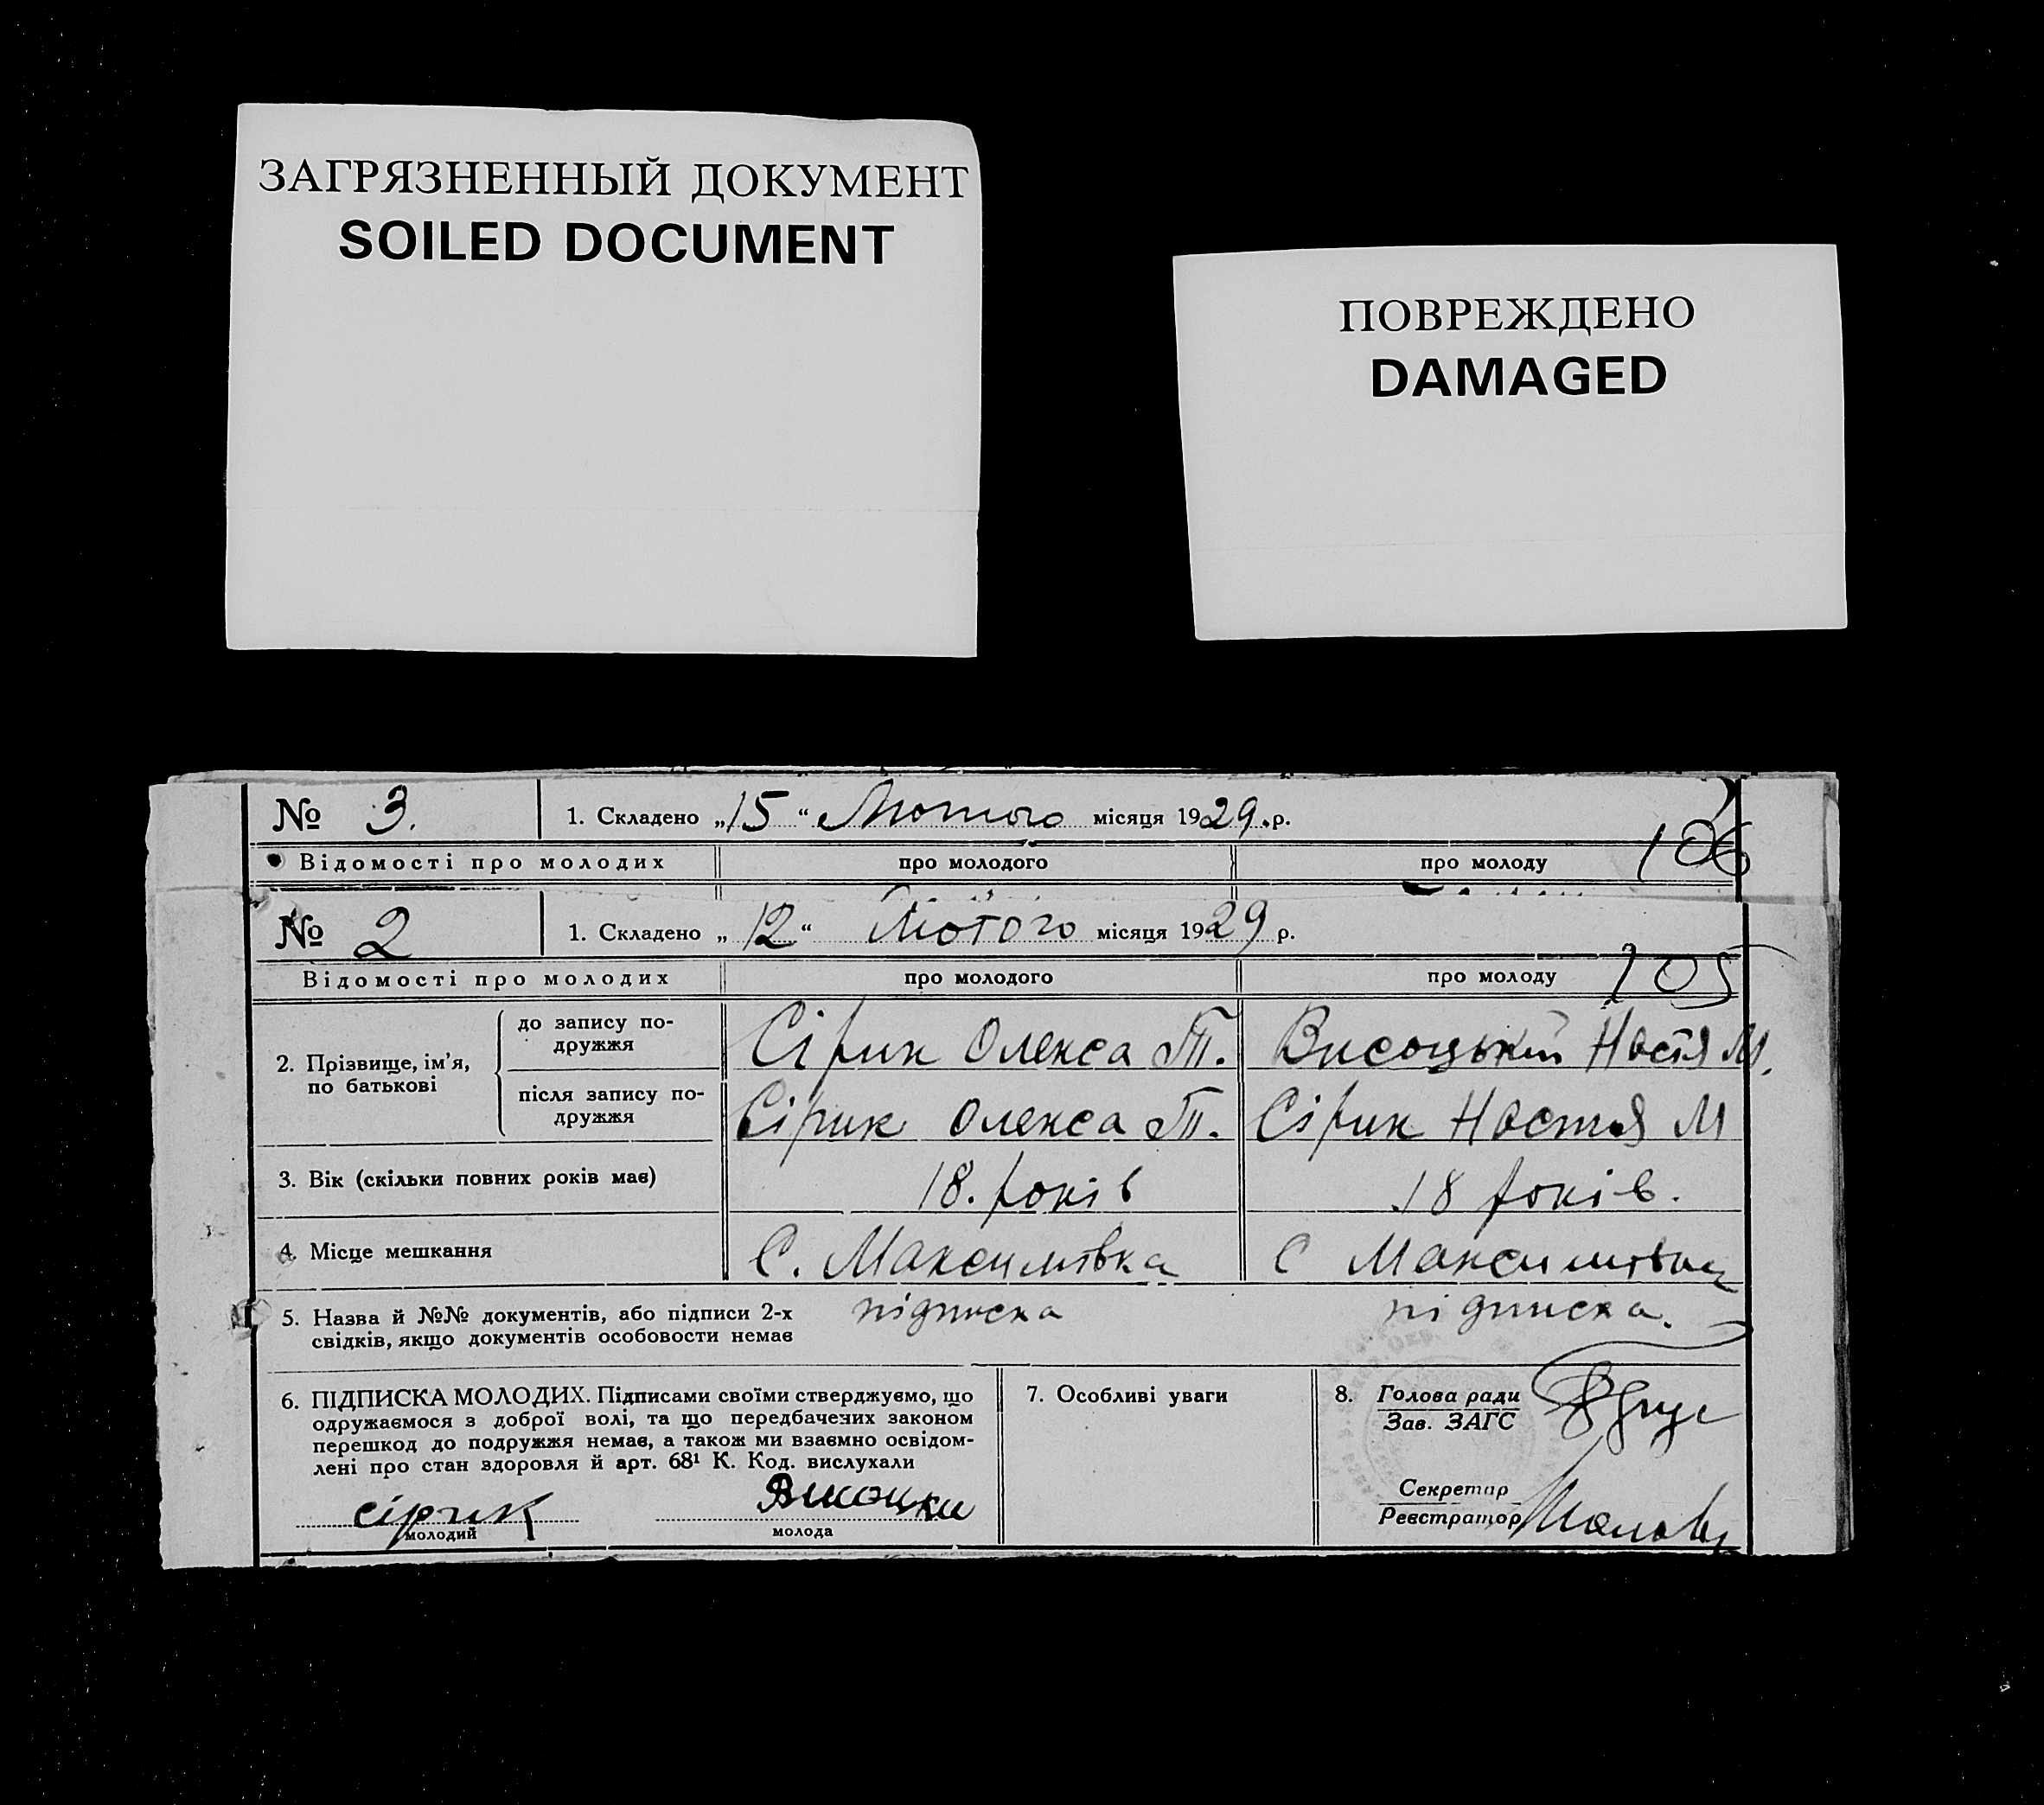 ЗАГРЯЗНЕННЫЙ ДОКУМЕНТ
SOILED DOCUMENT
ПОВРЕЖДЕНО
DAMAGED
№ 3. 1. Складено „15“ Лютого місяця 1929.р.
106
Відомості про молодих про молодого про молоду
№ 2 1. Складено „12“ Лютого місяця 1929 р.
105
Відомості про молодих про молодого про молоду
2. Прізвище, ім’я, по батькові
до запису подружжя Сірик Олекса Т. Висоцький Настя М.
після запису подружжя Сірик Олекса Т. Сірик Настя М
3. Вік (скільки повних років має) 18. років 18 років.
4. Місце мешкання С. Максимівка С Максимівка
5. Назва й №№ документів, або підписи 2-х підписка підписка.
свідків, якщо документів особовости немає
6. ПІДПИСКА МОЛОДИХ. Підписами своїми стверджуємо, що
одружаємося з доброї волі, та що передбачених законом
перешкод до подружжя немає, а також ми взаємно освідом-
лені про стан здоровля й арт. 68¹ К. Код. вислухали
сірик
молодий
молода
7. Особливі уваги
8. Голова ради
Зав. ЗАГС
Секретар
Реєстратор